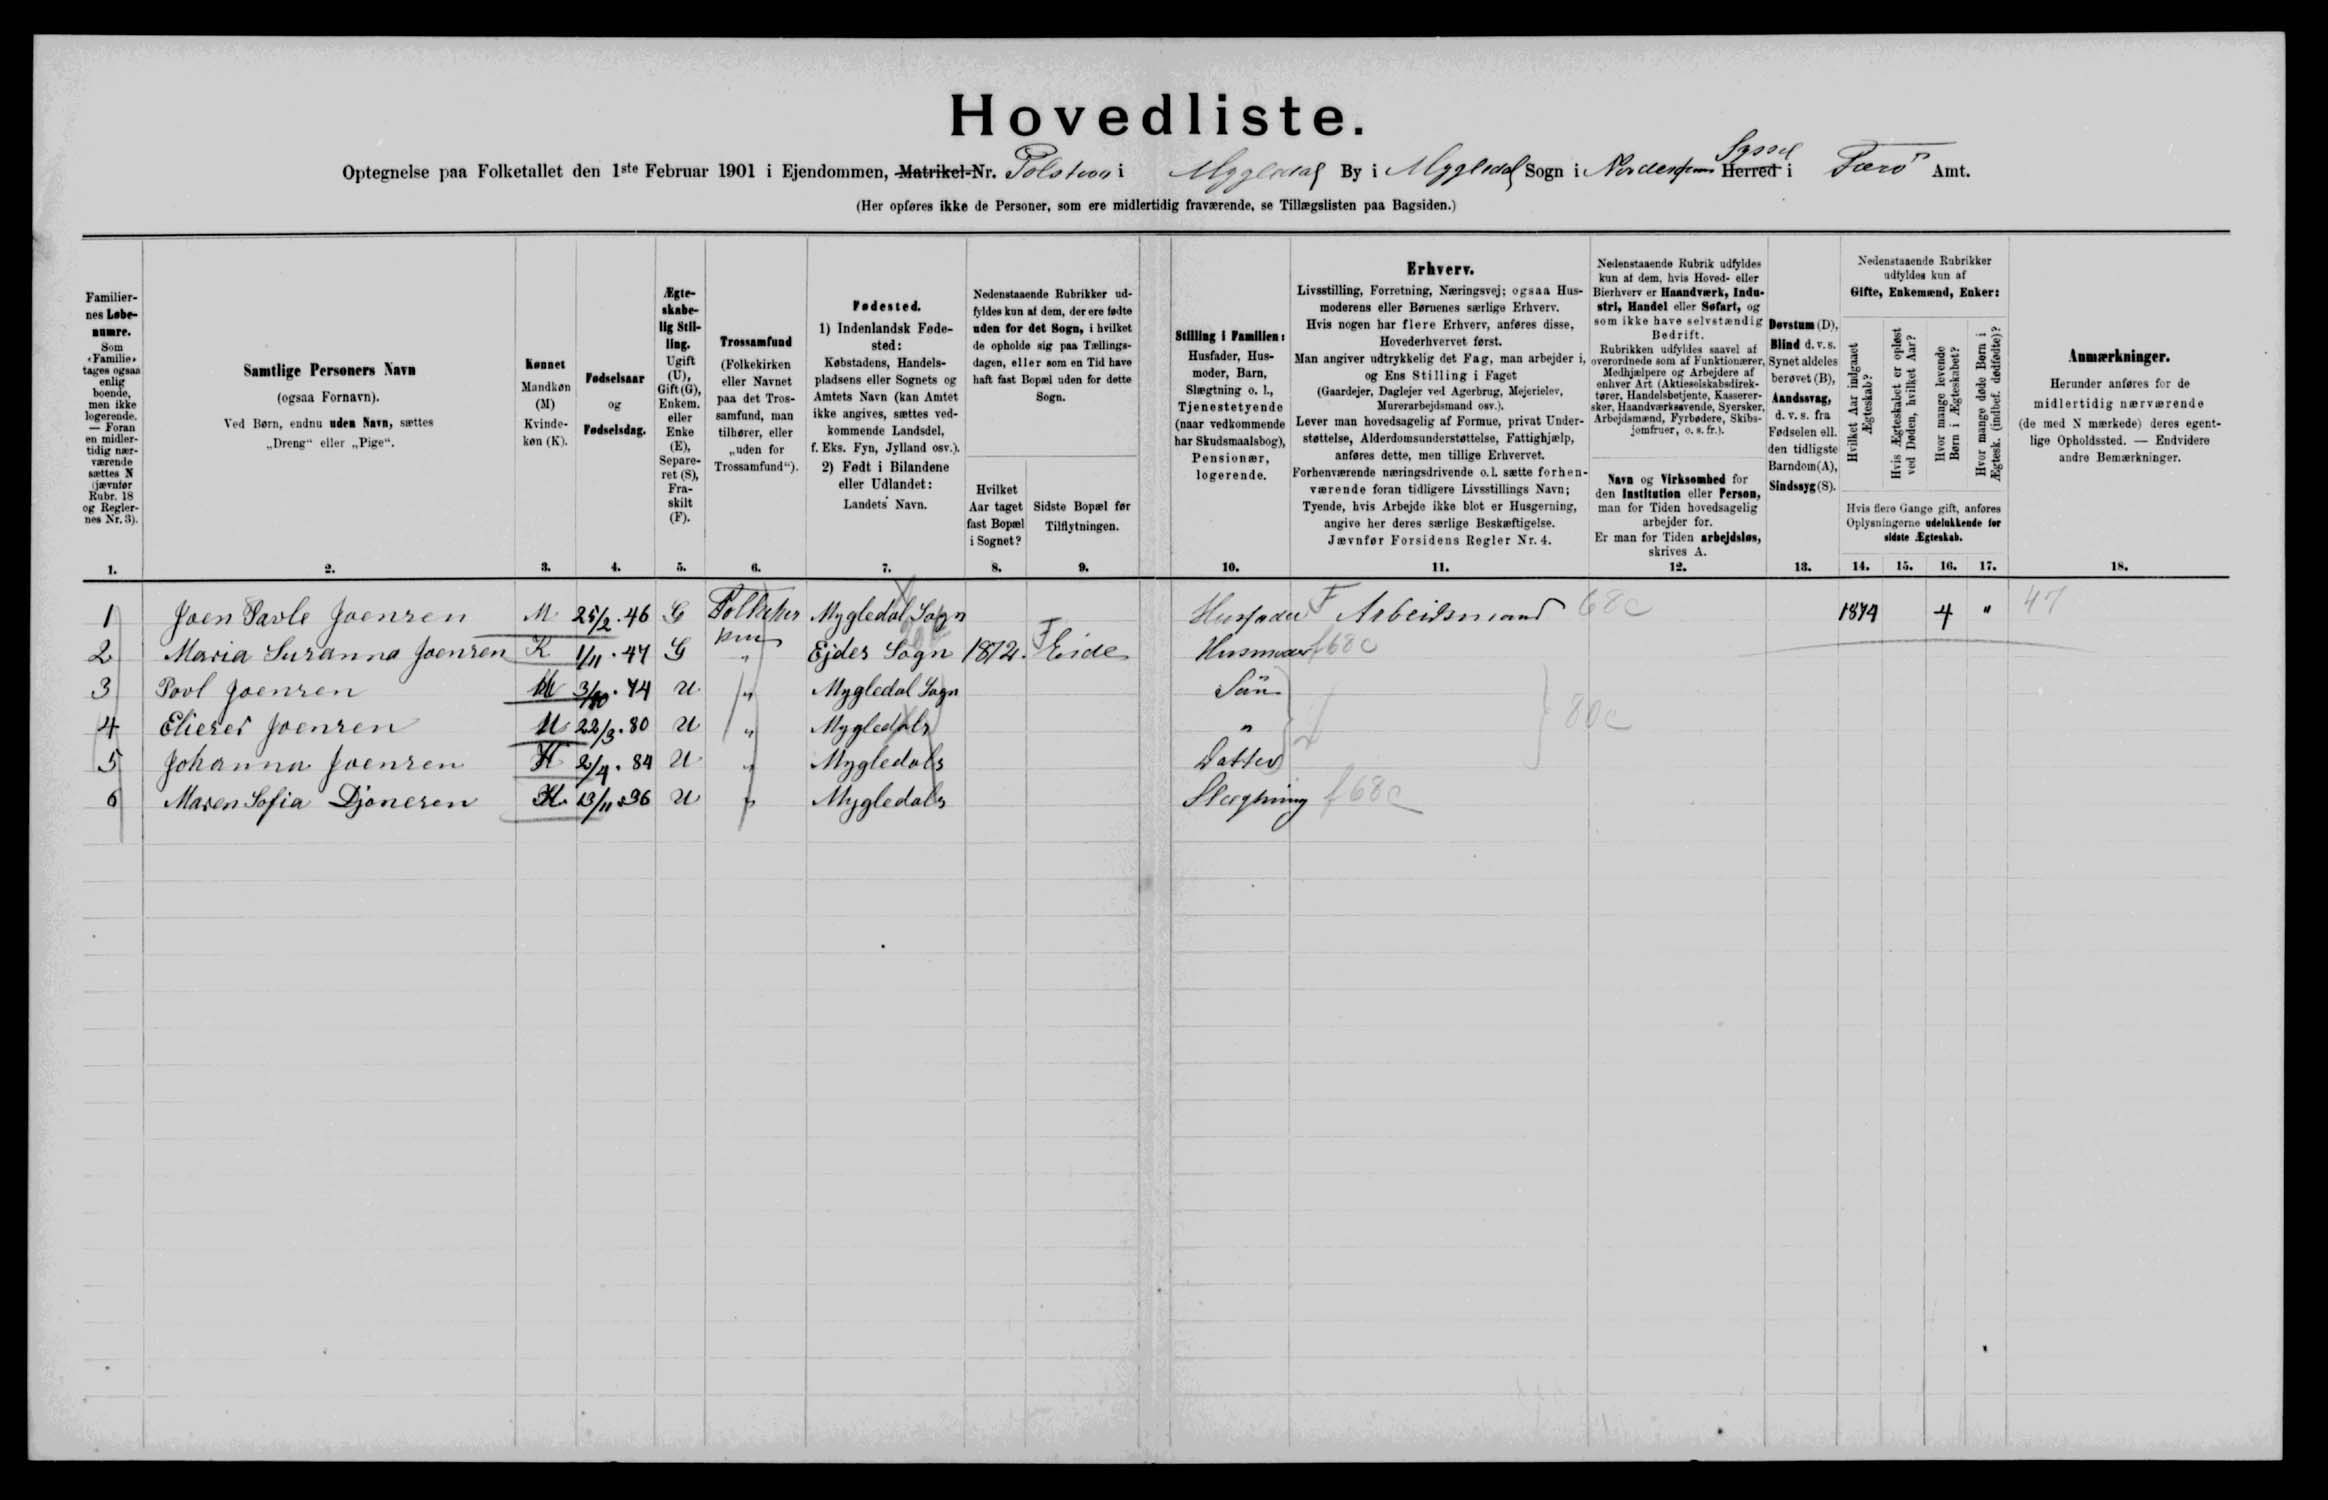 Hovedliste.
Optegnelse paa Folketallet den 1ste Februar 1901 i Ejendommen, Matrikel-Nr. i Mygledal By i Mygledal Sogn i Herred Syssel i Færø Amt.
(Her opføres ikke de Personer, som ere midlertidig fraværende, se Tillægslisten paa Bagsiden.)
Familiernes Løbenumre. Som «Familie» tages ogsaa enlig boende, men ikke logerende. — Foran en midlertidig nærværende sættes N (jævnfør Rubr. 18 og Reglernes Nr. 3).
Samtlige Personers Navn (ogsaa Fornavn). Ved Børn, endnu uden Navn, sættes „Dreng“ eller „Pige“.
Kønnet Mandkøn (M) Kvindekøn (K).
Fødselsaar og Fødselsdag.
Ægteskabelig Stilling. Ugift (U), Gift (G), Enkem. eller Enke (E), Separeret (S), Fraskilt (F).
Trossamfund (Folkekirken eller Navnet paa det Trossamfund, man tilhører, eller „uden for Trossamfund“).
Fødested. 1) Indenlandsk Fødested: Købstadens, Handelspladsens eller Sognets og Amtets Navn (kan Amtet ikke angives, sættes vedkommende Landsdel, f. Eks. Fyn, Jylland osv.). 2) Født i Bilandene eller Udlandet: Landets Navn.
Nedenstaaende Rubrikker udfyldes kun af dem, der ere fødte uden for det Sogn, i hvilket de opholde sig paa Tællingsdagen, eller som en Tid have haft fast Bopæl uden for dette Sogn.
Hvilket Aar taget fast Bopæl i Sognet?
Sidste Bopæl før Tilflytningen.
Stilling i Familien: Husfader, Husmoder, Barn, Slægtning o. l., Tjenestetyende (naar vedkommende har Skudsmaalsbog), Pensionær, logerende.
Erhverv.
Livsstilling, Forretning, Næringsvej; ogsaa Husmoderens eller Børnenes særlige Erhverv.
Hvis nogen har flere Erhverv, anføres disse, Hovederhvervet først.
Man angiver udtrykkelig det Fag, man arbejder i, og Ens Stilling i Faget
(Gaardejer, Daglejer ved Agerbrug, Mejerielev, Murerarbejdsmand osv.).
Lever man hovedsagelig af Formue, privat Understøttelse, Alderdomsunderstøttelse, Fattighjælp, anføres dette, men tillige Erhvervet.
Forhenværende næringsdrivende o. l. sætte forhenværende foran tidligere Livsstillings Navn;
Tyende, hvis Arbejde ikke blot er Husgerning, angive her deres særlige Beskæftigelse.
Jævnfør Forsidens Regler Nr. 4.
Nedenstaaende Rubrik udfyldes kun af dem, hvis Hoved- eller Bierhverv er Haandværk, Industri, Handel eller Søfart, og som ikke have selvstændig Bedrift.
Rubrikken udfyldes saavel af overordnede som af Funktionærer, Medhjælpere og Arbejdere af enhver Art (Aktieselskabsdirektører, Handelsbetjente, Kasserersker, Haandværkssvende, Syersker, Arbejdsmænd, Fyrbødere, Skibsjomfruer, o. s. fr.).
Navn og Virksomhed for den Institution eller Person, man for Tiden hovedsagelig arbejder for.
Er man for Tiden arbejdsløs, skrives A.
Døvstum (D), Blind d. v. s. Synet aldeles berøvet (B), Aandssvag, d. v. s. fra Fødselen ell. den tidligste Barndom (A), Sindssyg (S).
Nedenstaaende Rubrikker udfyldes kun af Gifte, Enkemænd, Enker:
Hvilket Aar indgaaet Ægteskab?
Hvis Ægteskabet er opløst ved Døden, hvilket Aar?
Hvor mange levende Børn i Ægteskabet?
Hvor mange døde Børn i Ægtesk. (indbef. dødfødte)?
Hvis flere Gange gift, anføres Oplysningerne udelukkende for sidste Ægteskab.
Anmærkninger.
Herunder anføres for de midlertidig nærværende (de med N mærkede) deres egentlige Opholdssted. — Endvidere andre Bemærkninger.
1. 2. 3. 4. 5. 6. 7. 8. 9. 10. 11. 12. 13. 14. 15. 16. 17. 18.
1 Joen Pavle Joensen M 25/2. 46 G Mygledal Sogn Husfader F Arbeidsmand 68c 1874 4 " 47
2 Maria Susanna Joensen K 1/11. 47 G " Ejdes Sogn 1872. Eide Husmoder f68c
3 Povl Joensen M 74 U " Mygledal Sogn Sön
4 Elieser Joensen M 22/3. 80 U " Mygledals " 80c
5 Johanna Joensen K 2/4. 84 U " Mygledals Datter
6 Maren Sofia Djonesen K 13/11. 96 U " Mygledals Slægtning f68c